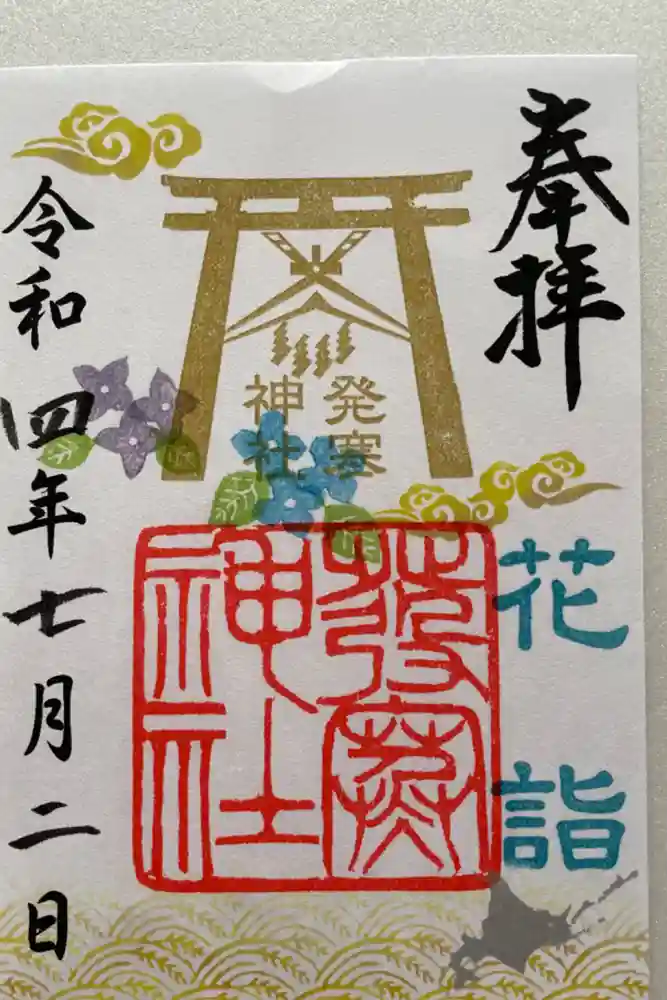 奉拝
花詣
発寒
神社
發寒
神社
令和四年七月二日